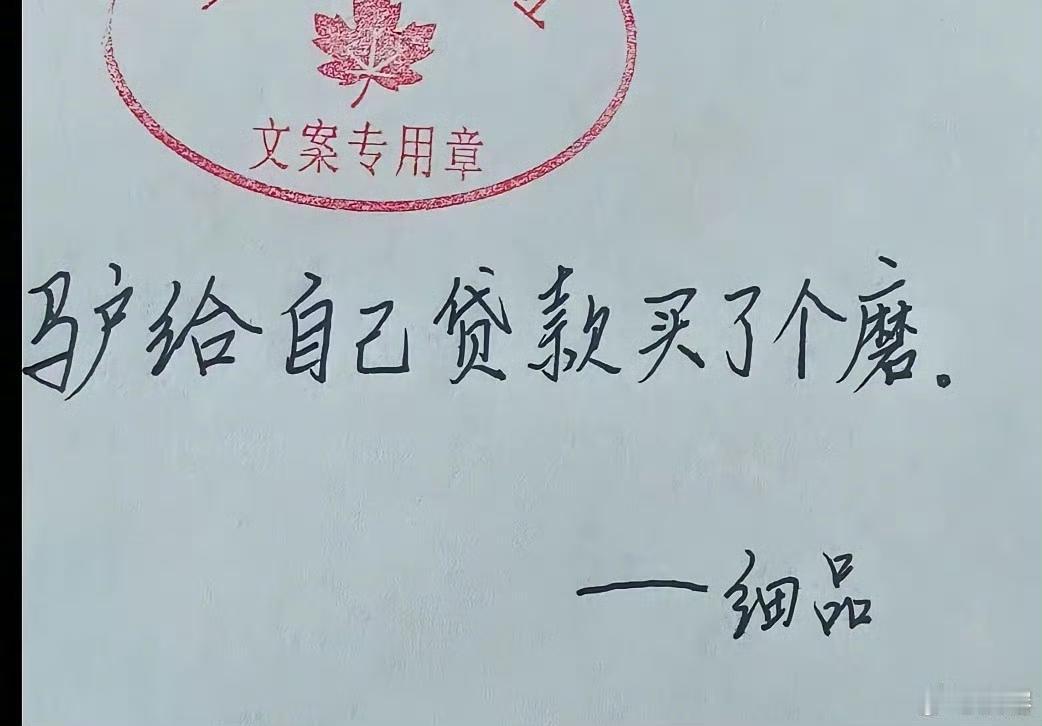 文案专用章
驴给自己贷款买了个磨。
——细品